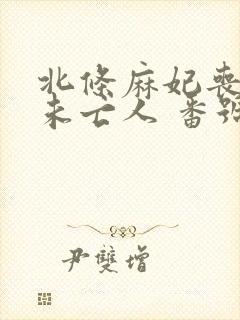 北條麻妃喪
未亡人 番號
尹雙增